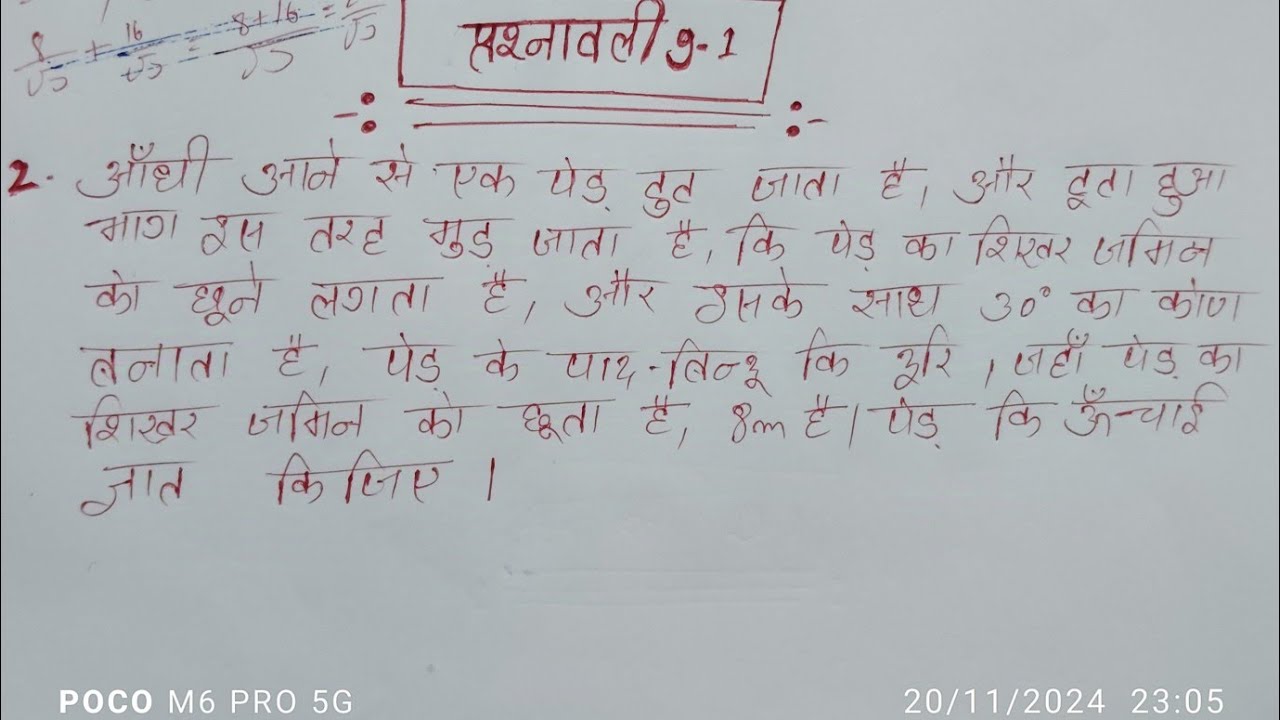 8/√3 + 16/√3 = 8+16/√3 =
प्रश्नावली 9-1
2. आँधी आने से एक पेड़ टुट जाता है, और टूता हुआ
भाग इस तरह मुड़ जाता है, कि पेड़ का शिखर जमिन
को छूने लगता है, और इसके साथ 30° का कोण
बनाता है, पेड़ के पाद-बिन्दू कि दूरि, जहाँ पेड़ का
शिखर जमिन को छूता है, 8m है। पेड़ कि ऊँचाई
ज्ञात किजिए।
POCO M6 PRO 5G
20/11/2024 23:05